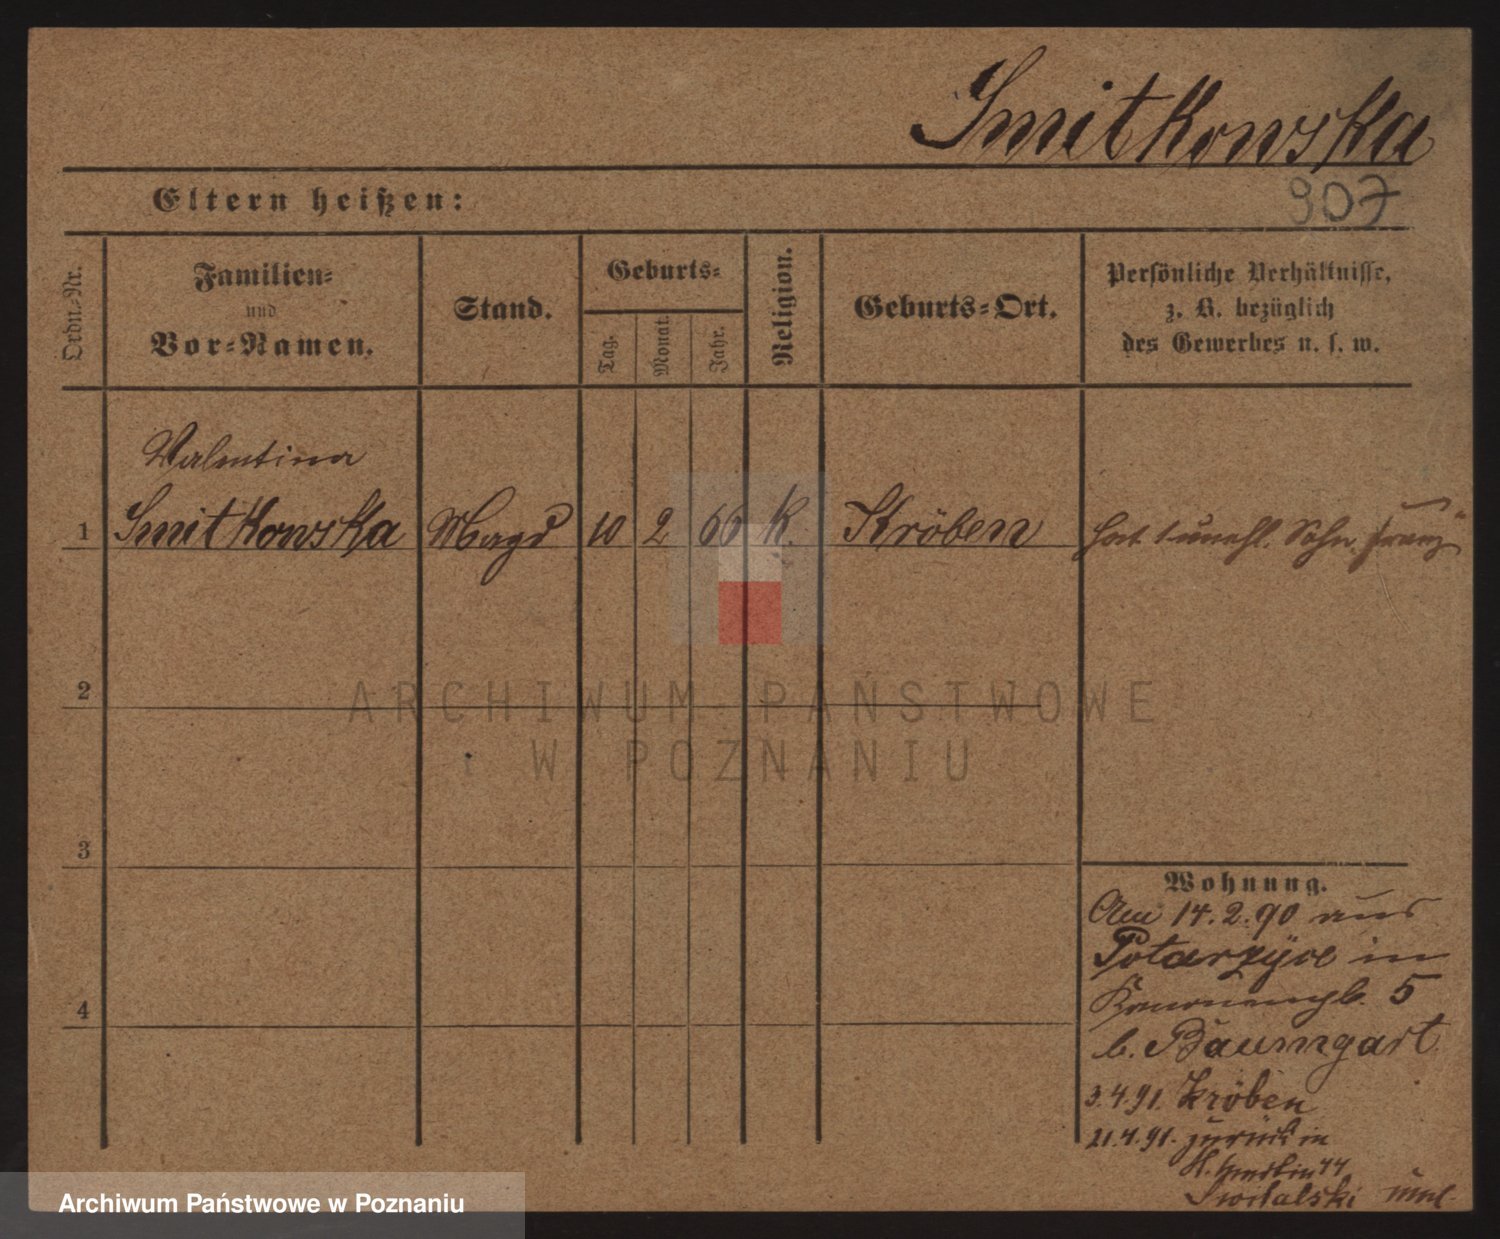 Smitkowska
Eltern heißen:
907
Ordn.-Nr.
Familien-
und
Vor-Namen.
Stand.
Geburts-
Tag.
Monat.
Jahr.
Religion.
Geburts-Ort.
Persönliche Verhältnisse,
z. B. bezüglich
des Gewerbes u. s. w.
Valentina
1 Smitkowska Magd 10 2 66 k. Kröben hat 1 unehl. Sohn Franz
2
3
4
Wohnung.
Am 14.2.90 aus
Potarzyce in
5
b. Baumgart
3.4.91. Kröben
21.4.91. zurück in
St. Martin 44
ARCHIWUM PAŃSTWOWE
W POZNANIU
Archiwum Państwowe w Poznaniu